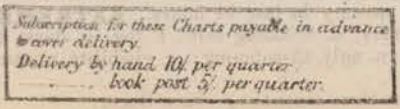 Subscription for these Charts payable in advance
to cover delivery.
Delivery by hand 10/. per quarter.
........... book post 5/. per quarter.